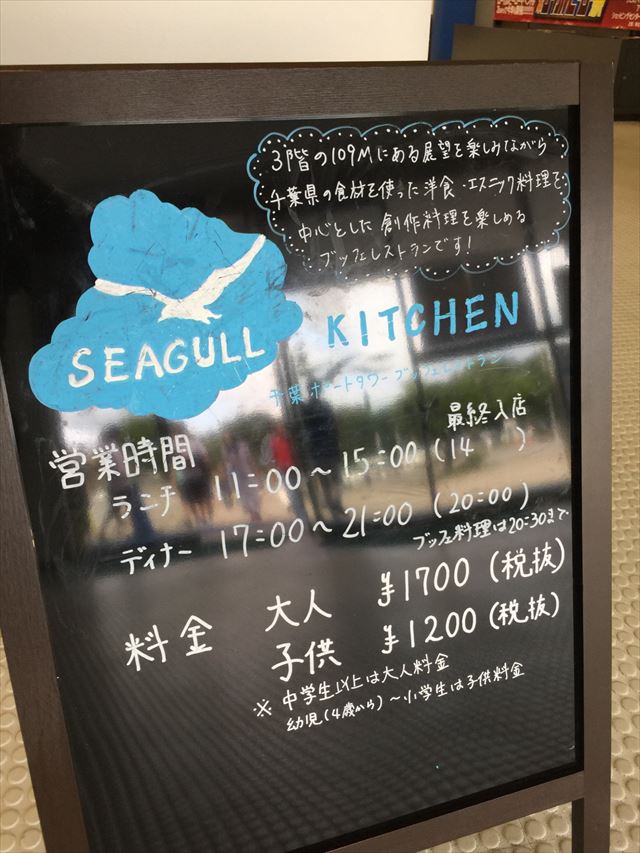 3階の109Mにある展望を楽しみながら
千葉県の食材を使った洋食・エスニック料理を
中心とした創作料理を楽しめる
ブッフェレストランです！
SEAGULL KITCHEN
千葉ポートタワーブッフェレストラン
営業時間
最終入店
ランチ 11:00～15:00 (14 )
ディナー 17:00～21:00 (20:00)
ブッフェ料理は20:30まで
料金
大人 ¥1700 (税抜)
子供 ¥1200 (税抜)
※ 中学生以上は大人料金
幼児(4歳から)～小学生は子供料金